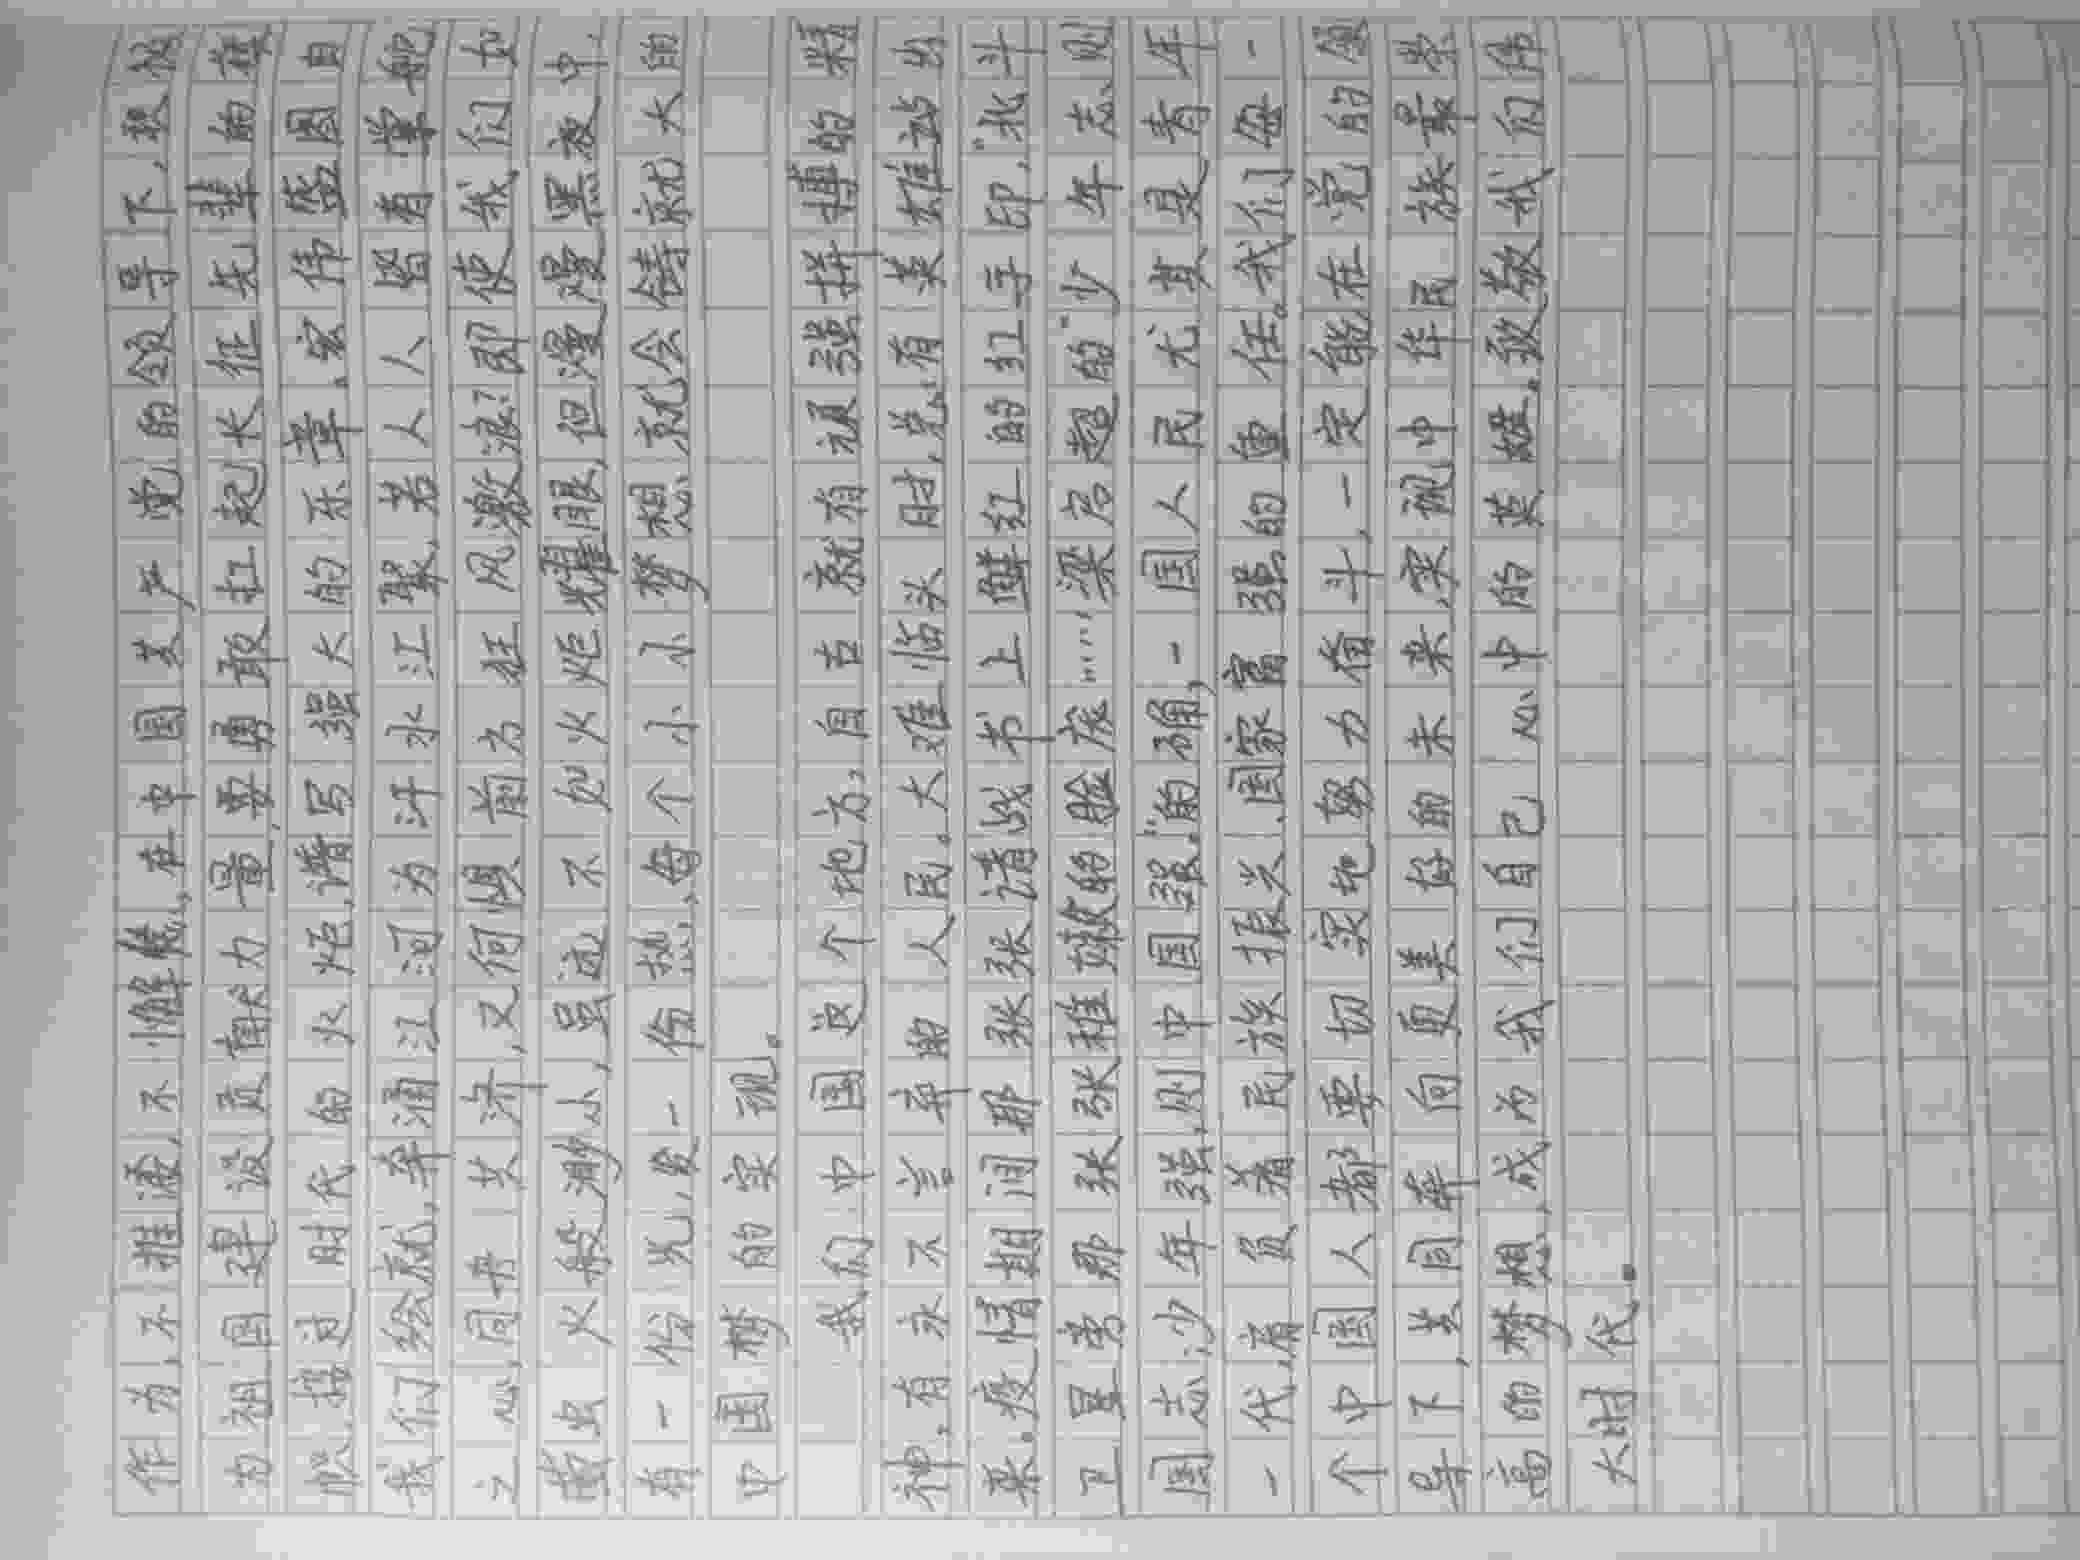 作为,不推诿,不懈怠,在中国共产党的领导下,积极
为祖国建设贡献力量,要勇敢扛起长征先辈的旗
帜,擂过时代的火炬,谱写强大的乐章。宏伟盛图自
我们绘就,奔涌江河为汗水江聚,若人人皆有掌舵
之心,同舟共济,又何惧前方狂风激浪?即使我们如
萤虫火般渺小,虽远不如火炬耀眼,但漫漫黑夜中,
有一份光,发一份热,每个小小梦想就会铸就大的
中国梦的实现。
我们中国这个地方,自古就有顽强拼搏的精
神,有永不言弃的人民。大难临头时,总有英雄站出
来。疫情期间那张张请战书上鲜红的红手印,“北斗
卫星旁那张张稚嫩的脸庞……梁启超的“少年志,则
国志,少年强,则中国强。”的确,一国人民尤其是青年
一代,肩负着民族振兴、国家富强的重任。我们每一
个中国人都要切实地努力奋斗,一定能在党的领
导下,共同奔向更美好的未来,实现中华民族最崇
高的梦想,成为我们自己心中的英雄。致敬我们伟
大时代。